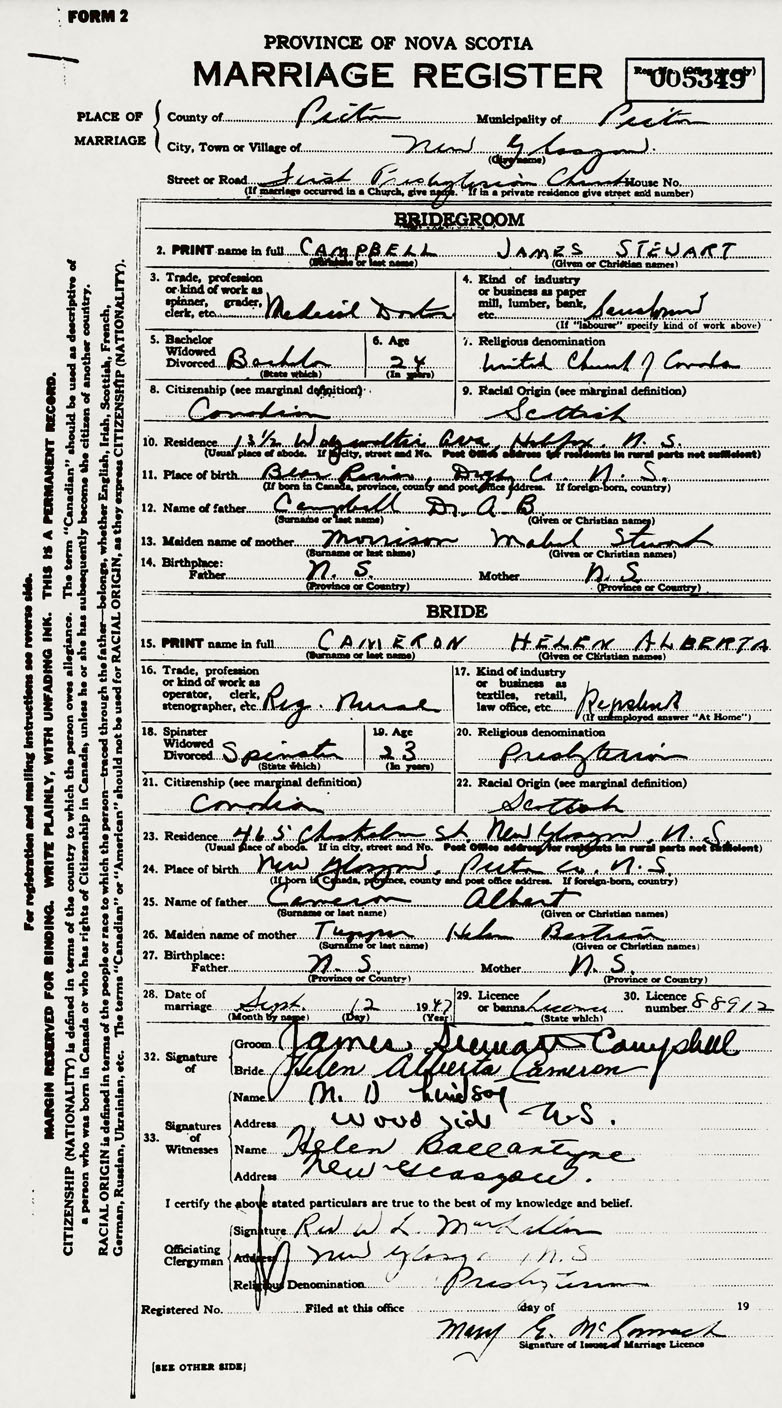 FORM 2
PROVINCE OF NOVA SCOTIA
MARRIAGE REGISTER
005349
PLACE OF MARRIAGE
County of Pictou Municipality of Pictou
City, Town or Village of New Glasgow
(Give name)
Street or Road First Presbyterian Church House No.
(If marriage occurred in a Church, give name. If in a private residence give street and number)
BRIDEGROOM
2. PRINT name in full CAMPBELL JAMES STEWART
(Surname or last name) (Given or Christian names)
3. Trade, profession or kind of work as spinner, grader, clerk, etc. Medical Doctor
4. Kind of industry or business as paper mill, lumber, bank, etc.
(If "labourer" specify kind of work above)
5. Bachelor Widowed Divorced Bachelor
(State which)
6. Age 24
(In years)
7. Religious denomination
United Church of Canada
8. Citizenship (see marginal definition)
Canadian
9. Racial Origin (see marginal definition)
Scottish
10. Residence 13½ Ave, Halifax, N. S.
(Usual place of abode. If in city, street and No. Post Office address for residents in rural parts not sufficient)
11. Place of birth Bear River, Digby Co. N. S.
(If born in Canada, province, county and post office address. If foreign-born, country)
12. Name of father Campbell Dr. A. B.
(Surname or last name) (Given or Christian names)
13. Maiden name of mother Morrison Mabel Stewart
(Surname or last name) (Given or Christian names)
14. Birthplace: Father N. S. Mother N. S.
(Province or Country) (Province or Country)
BRIDE
15. PRINT name in full CAMERON HELEN ALBERTA
(Surname or last name) (Given or Christian names)
16. Trade, profession or kind of work as operator, clerk, stenographer, etc. Reg. Nurse
17. Kind of industry or business as textiles, retail, law office, etc.
(If unemployed answer "At Home")
18. Spinster Widowed Divorced Spinster
(State which)
19. Age 23
(In years)
20. Religious denomination
Presbyterian
21. Citizenship (see marginal definition)
Canadian
22. Racial Origin (see marginal definition)
Scottish
23. Residence 465 Chisholm St. New Glasgow, N. S.
(Usual place of abode. If in city, street and No. Post Office address for residents in rural parts not sufficient)
24. Place of birth New Glasgow, Pictou Co. N. S.
(If born in Canada, province, county and post office address. If foreign-born, country)
25. Name of father Cameron Albert
(Surname or last name) (Given or Christian names)
26. Maiden name of mother Tupper Helen
(Surname or last name) (Given or Christian names)
27. Birthplace: Father N. S. Mother N. S.
(Province or Country) (Province or Country)
28. Date of marriage Sept. 12 1947
(Month by name) (Day) (Year)
29. Licence or banns Licence
(State which)
30. Licence number 88912
32. Signature of
Groom James Stewart Campbell
Bride Helen Alberta Cameron
33. Signatures of Witnesses
Name M. D. Lindsay
Address Woodside N.S.
Name Helen Ballantyne
Address New Glasgow.
I certify the above stated particulars are true to the best of my knowledge and belief.
Officiating Clergyman
Signature Rev W. L.
Address New Glasgow, N. S
Religious Denomination Presbyterian
Registered No. Filed at this office day of 19
Mary E. McCormack
Signature of Issuer of Marriage Licence
[SEE OTHER SIDE]
For registration and mailing instructions see reverse side.
MARGIN RESERVED FOR BINDING. WRITE PLAINLY, WITH UNFADING INK. THIS IS A PERMANENT RECORD.
CITIZENSHIP (NATIONALITY) is defined in terms of the country to which the person owes allegiance. The term "Canadian" should be used as descriptive of
a person who was born in Canada or who has rights of Citizenship in Canada, unless he or she has subsequently become the citizen of another country.
RACIAL ORIGIN is defined in terms of the people or race to which the person—traced through the father—belongs, whether English, Irish, Scottish, French,
German, Russian, Ukrainian, etc. The terms "Canadian" or "American" should not be used for RACIAL ORIGIN, as they express CITIZENSHIP (NATIONALITY).